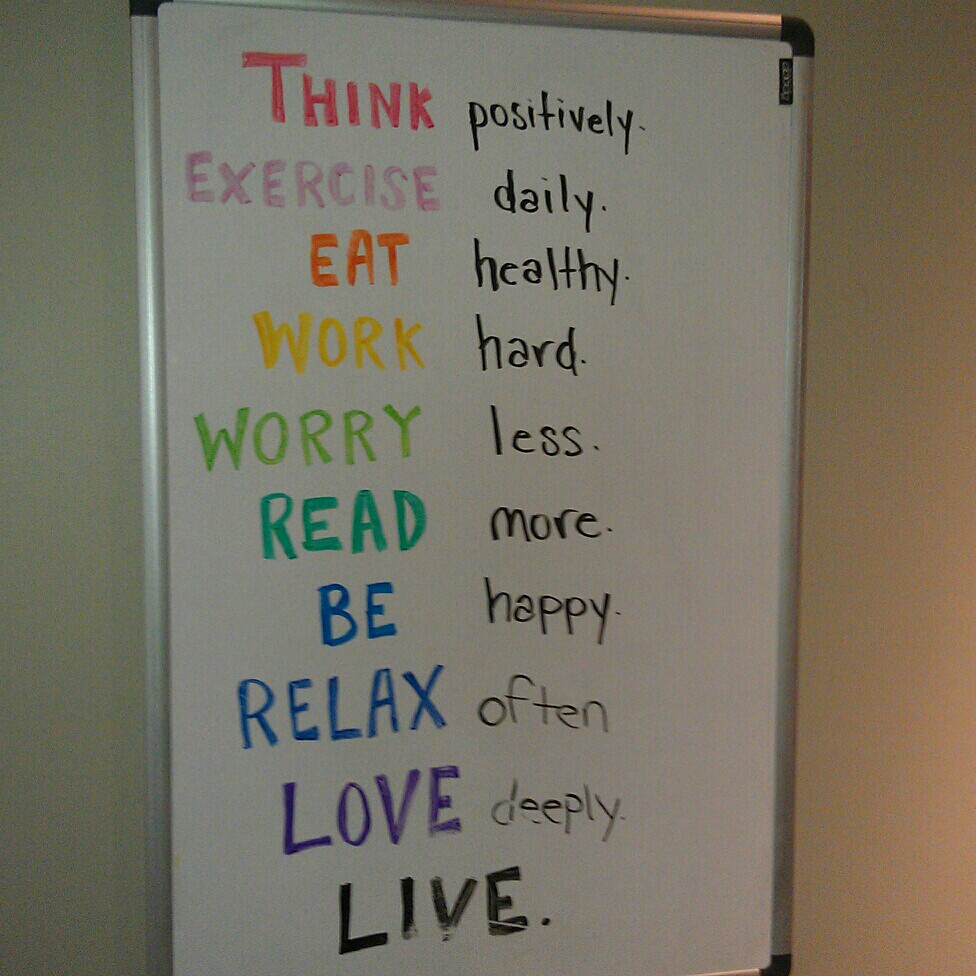 THINK positively.
EXERCISE daily.
EAT healthy.
WORK hard.
WORRY less.
READ more.
BE happy.
RELAX often
LOVE deeply.
LIVE.